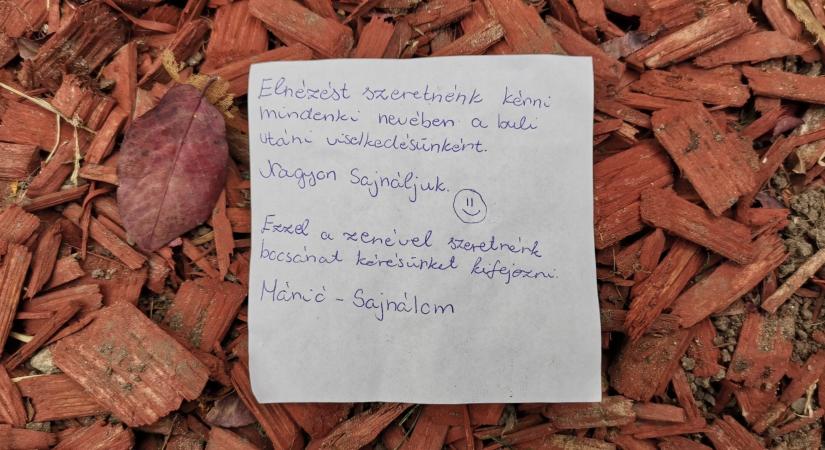 Elnézést szeretnénk kérni
mindenki nevében a buli
utáni viselkedésünkért.
Nagyon Sajnáljuk.
Ezzel a zenével szeretnénk
bocsánat kérésünket kifejezni.
Mánió - Sajnálom